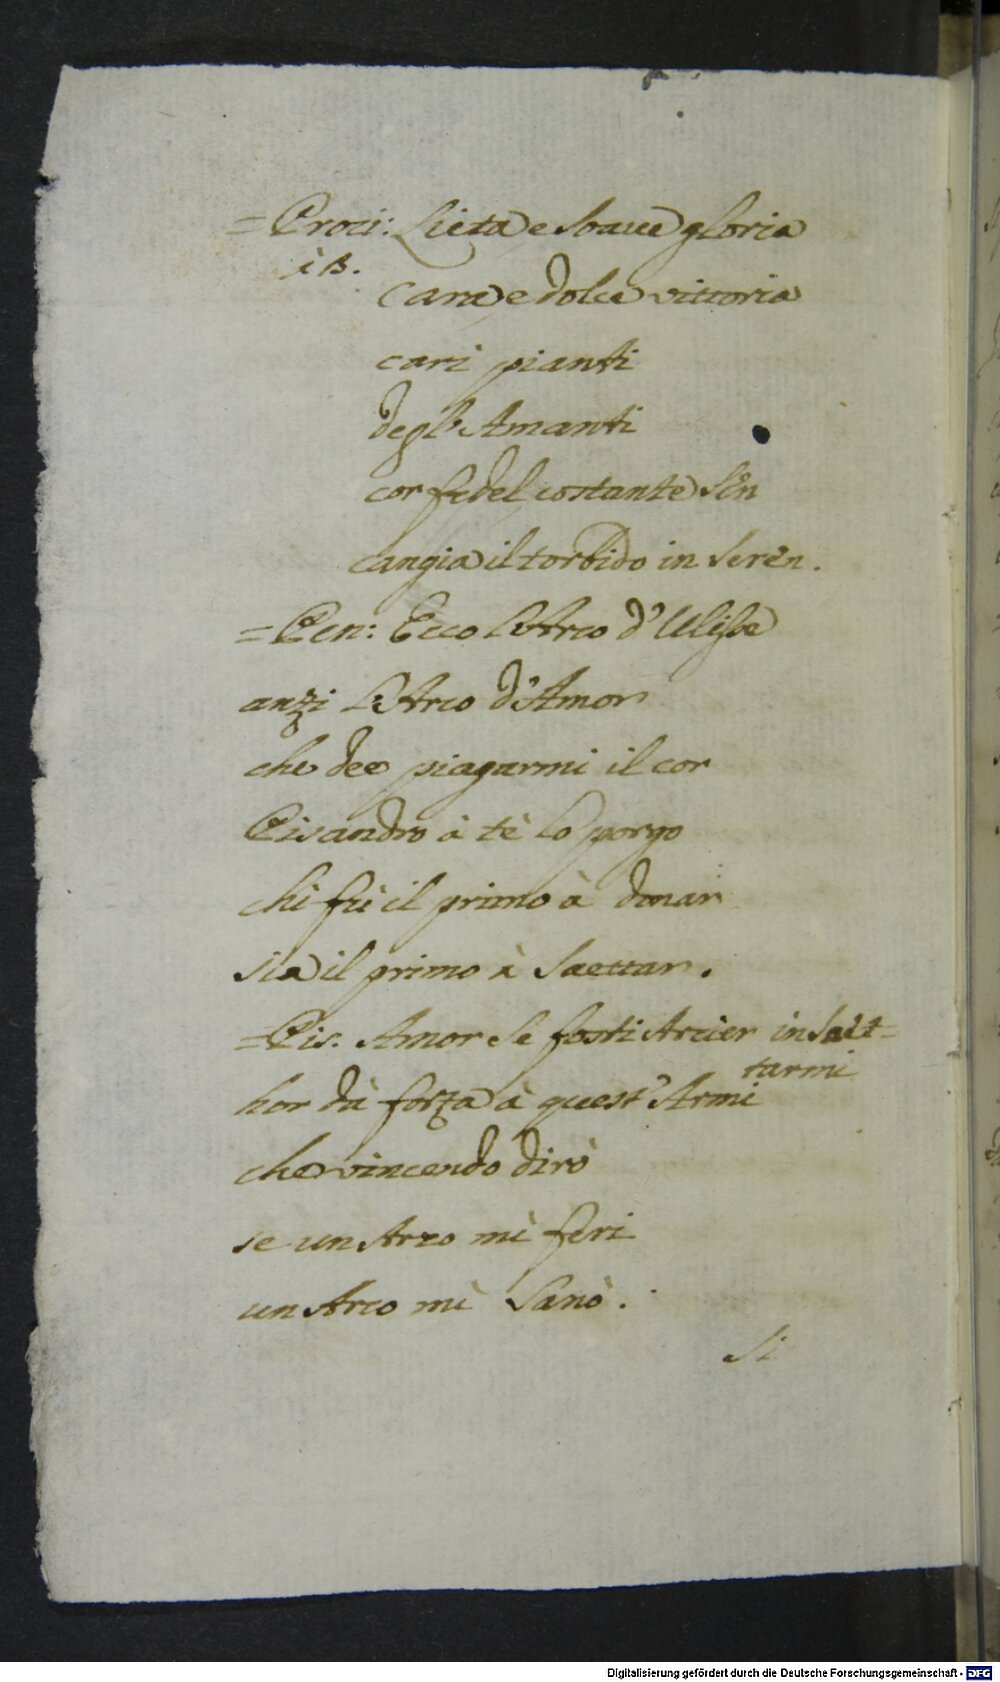 = Proci: Lieta e soaue gloria
à 3.
cara e dolce vittoria
cari pianti
degl' Amanti
cor fedel costante sen
cangia il torbido in seren.
= Pen: Ecco l'Arco d'Ulisse
anzi l'Arco d'Amor
che dee piagarmi il cor
Pisandro à tè lo porgo
chi fù il primo à donar
sia il primo à saettar.
= Pis. Amor se fosti Arcier in saet=
tarmi
hor dà forza à quest' Armi
che vincendo dirò
se un Arco mi ferì
un Arco mi sanò.
Si
Digitalisierung gefördert durch die Deutsche Forschungsgemeinschaft - DFG